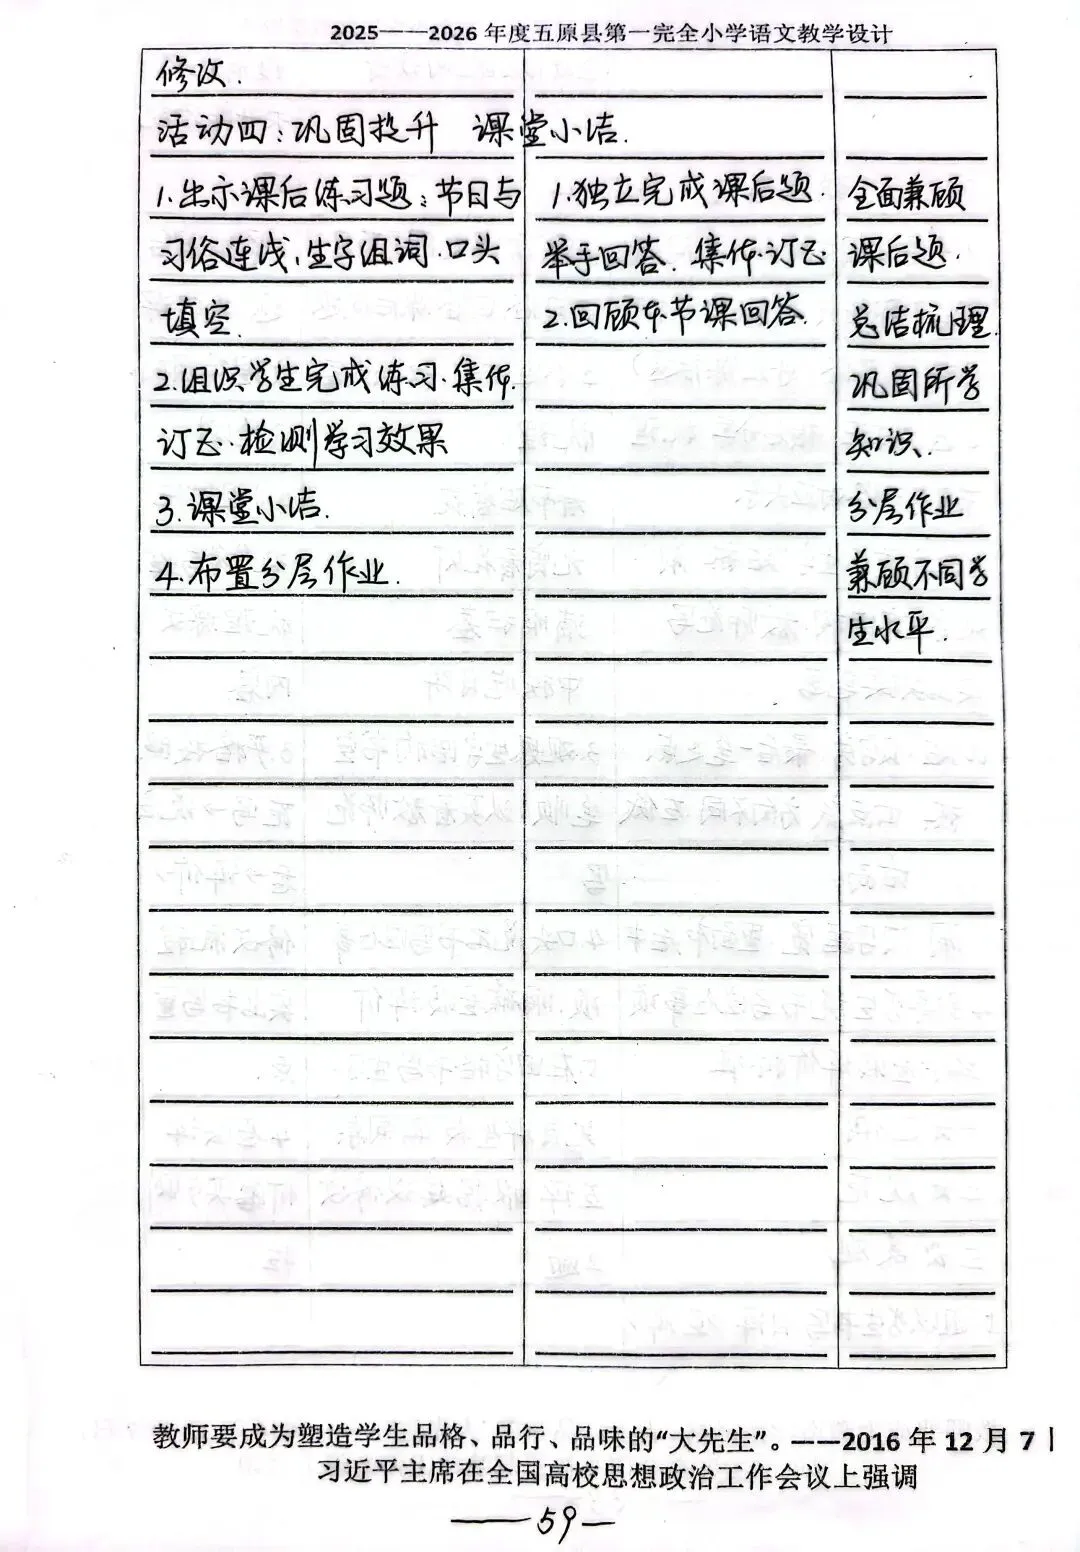 2025——2026 年度五原县第一完全小学语文教学设计
修改.
活动四:巩固提升 课堂小结.
1.出示课后练习题:节日与
习俗连线,生字组词.口头
填空.
2.组织学生完成练习.集体
订正.检测学习效果
3.课堂小结.
4.布置分层作业.
1.独立完成课后题.
举手回答.集体订正
2.回顾本节课回答.
全面兼顾
课后题.
总结梳理.
巩固所学
知识.
分层作业
兼顾不同学
生水平.
教师要成为塑造学生品格、品行、品味的“大先生”。——2016 年 12 月 7
习近平主席在全国高校思想政治工作会议上强调
—59—